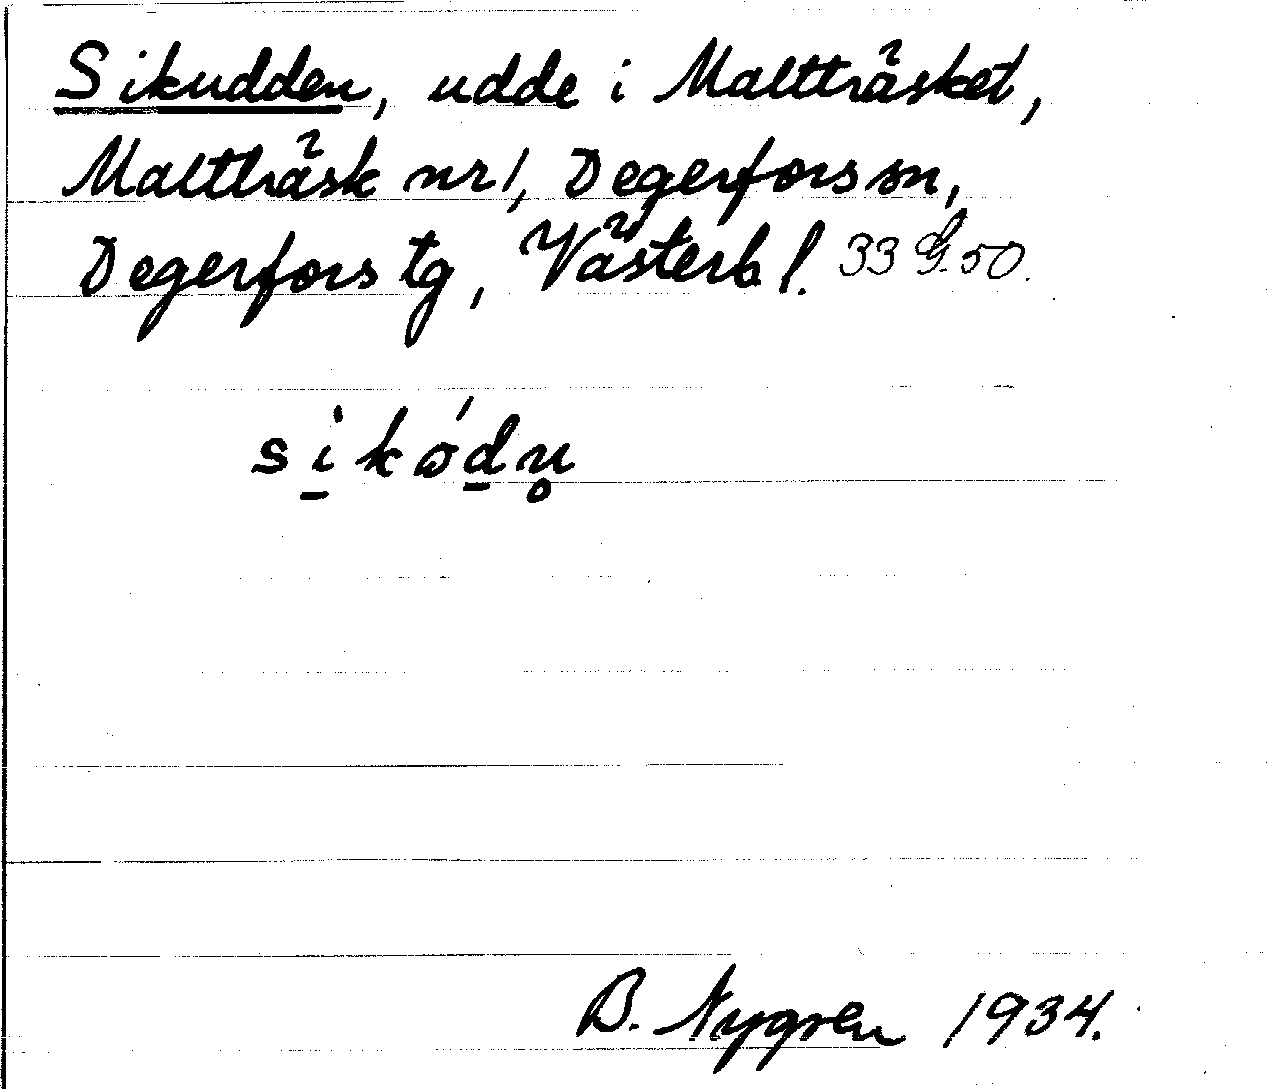 Sikudden, udde i Maltträsket,
Maltträsk nr 1, Degerfors sn,
Degerfors tg, Västerb. l. 33 G. 50.
si̱kó̱ḏn̥
B. Nygren 1934.